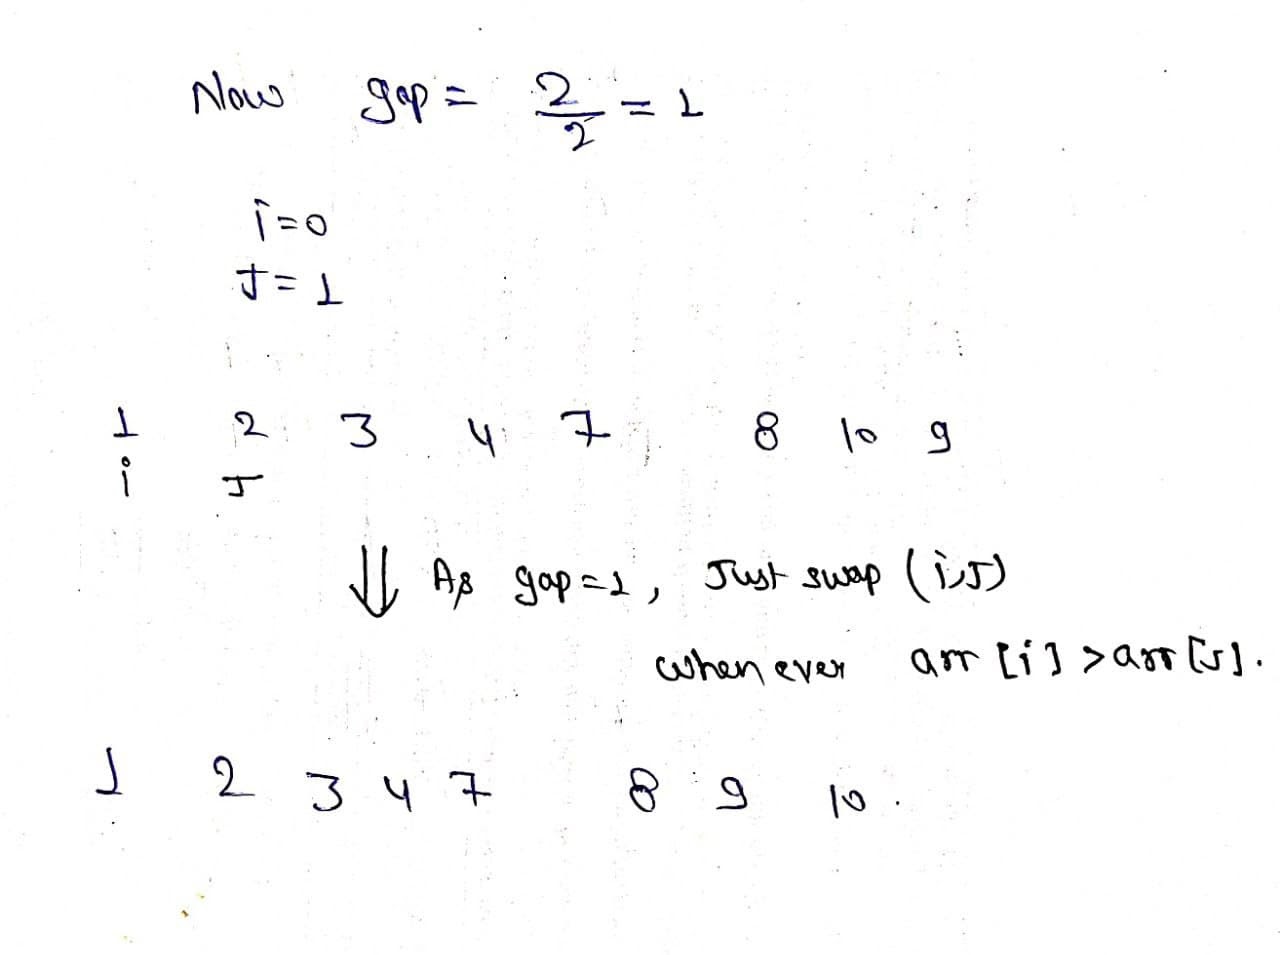 Now gap = 2/2 = 1
i=0
J=1
1 2 3 4 7 8 10 9
i J
⇓ As gap=1, Just swap (i,J)
whenever arr[i]>arr[J].
1 2 3 4 7 8 9 10.